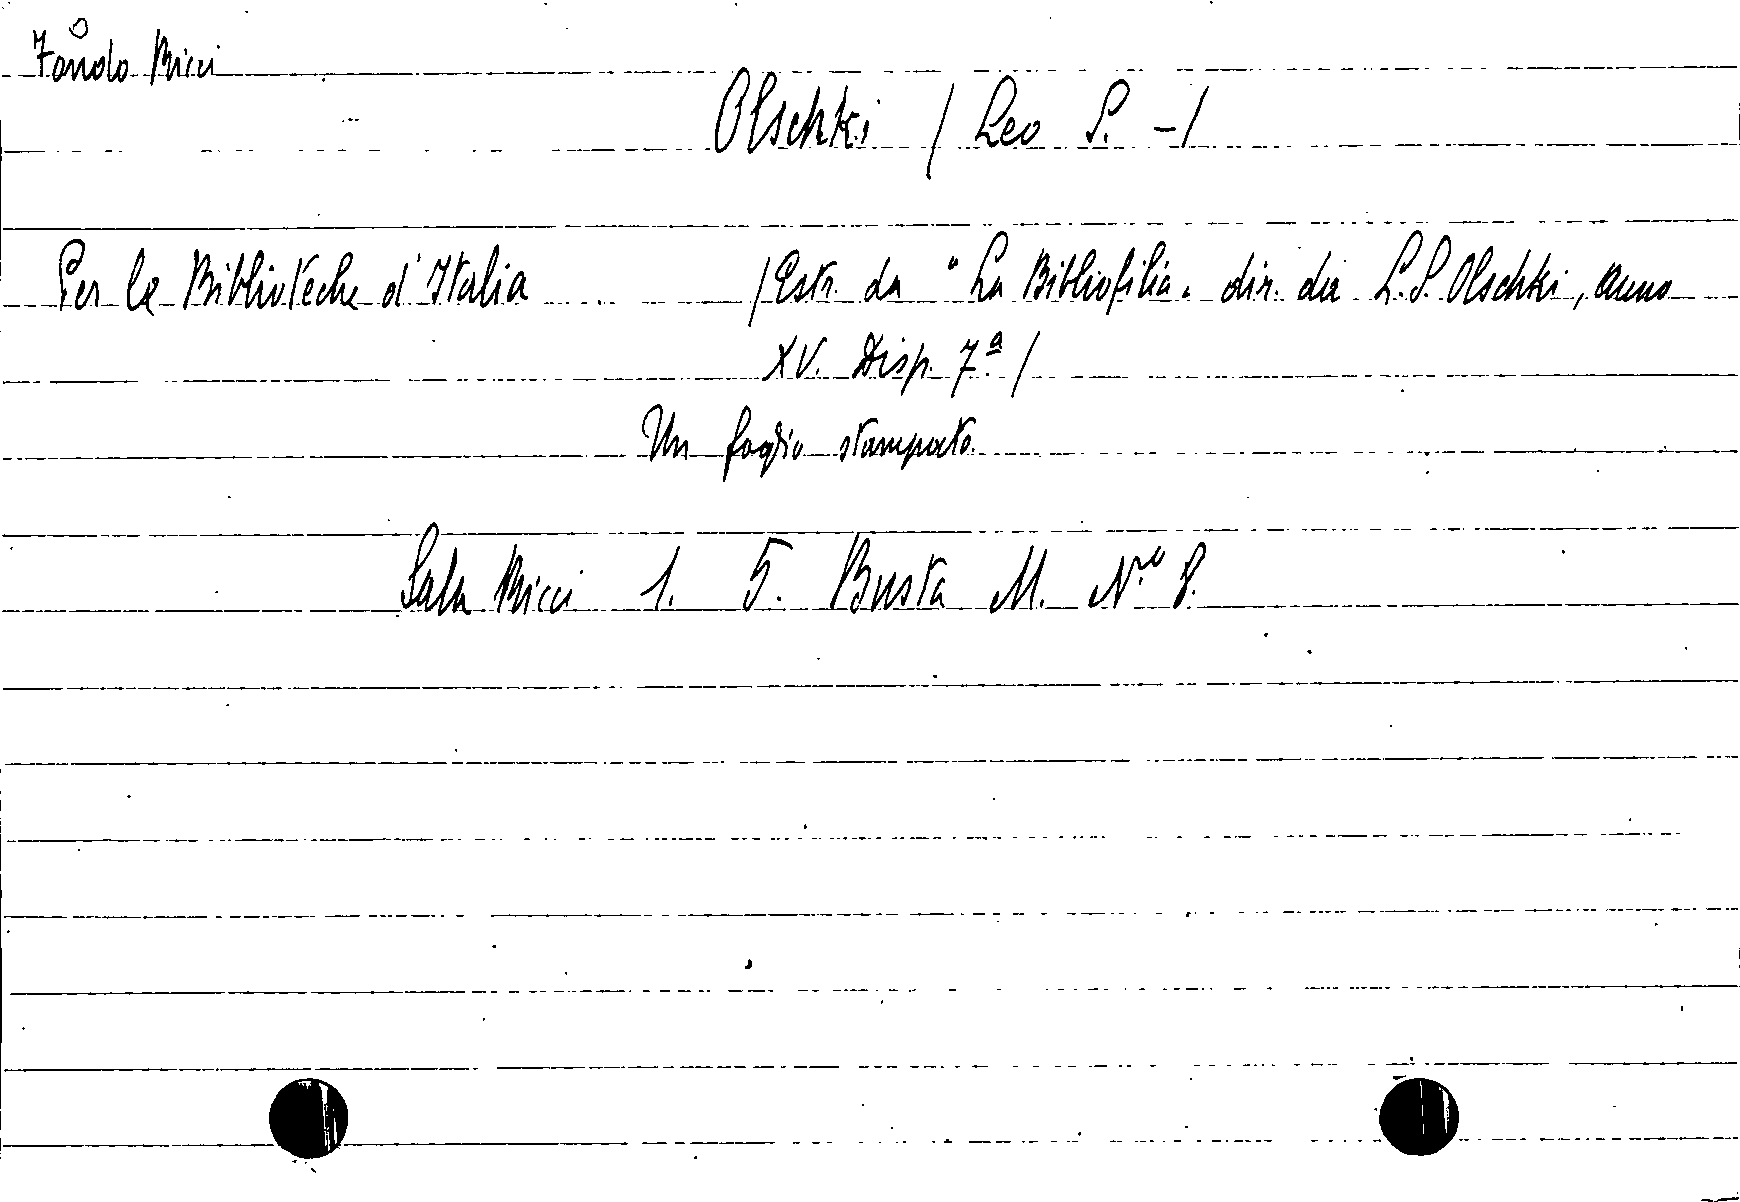 Fondo Ricci
Olschki / Leo S. - /
Per le Biblioteche d'Italia /Estr. da "La Bibliofilia" dir. da L.S. Olschki, anno
XV. Disp. 7ª /
Un foglio stampato.
Sala Ricci 1. 5. Busta M. N.º 8.